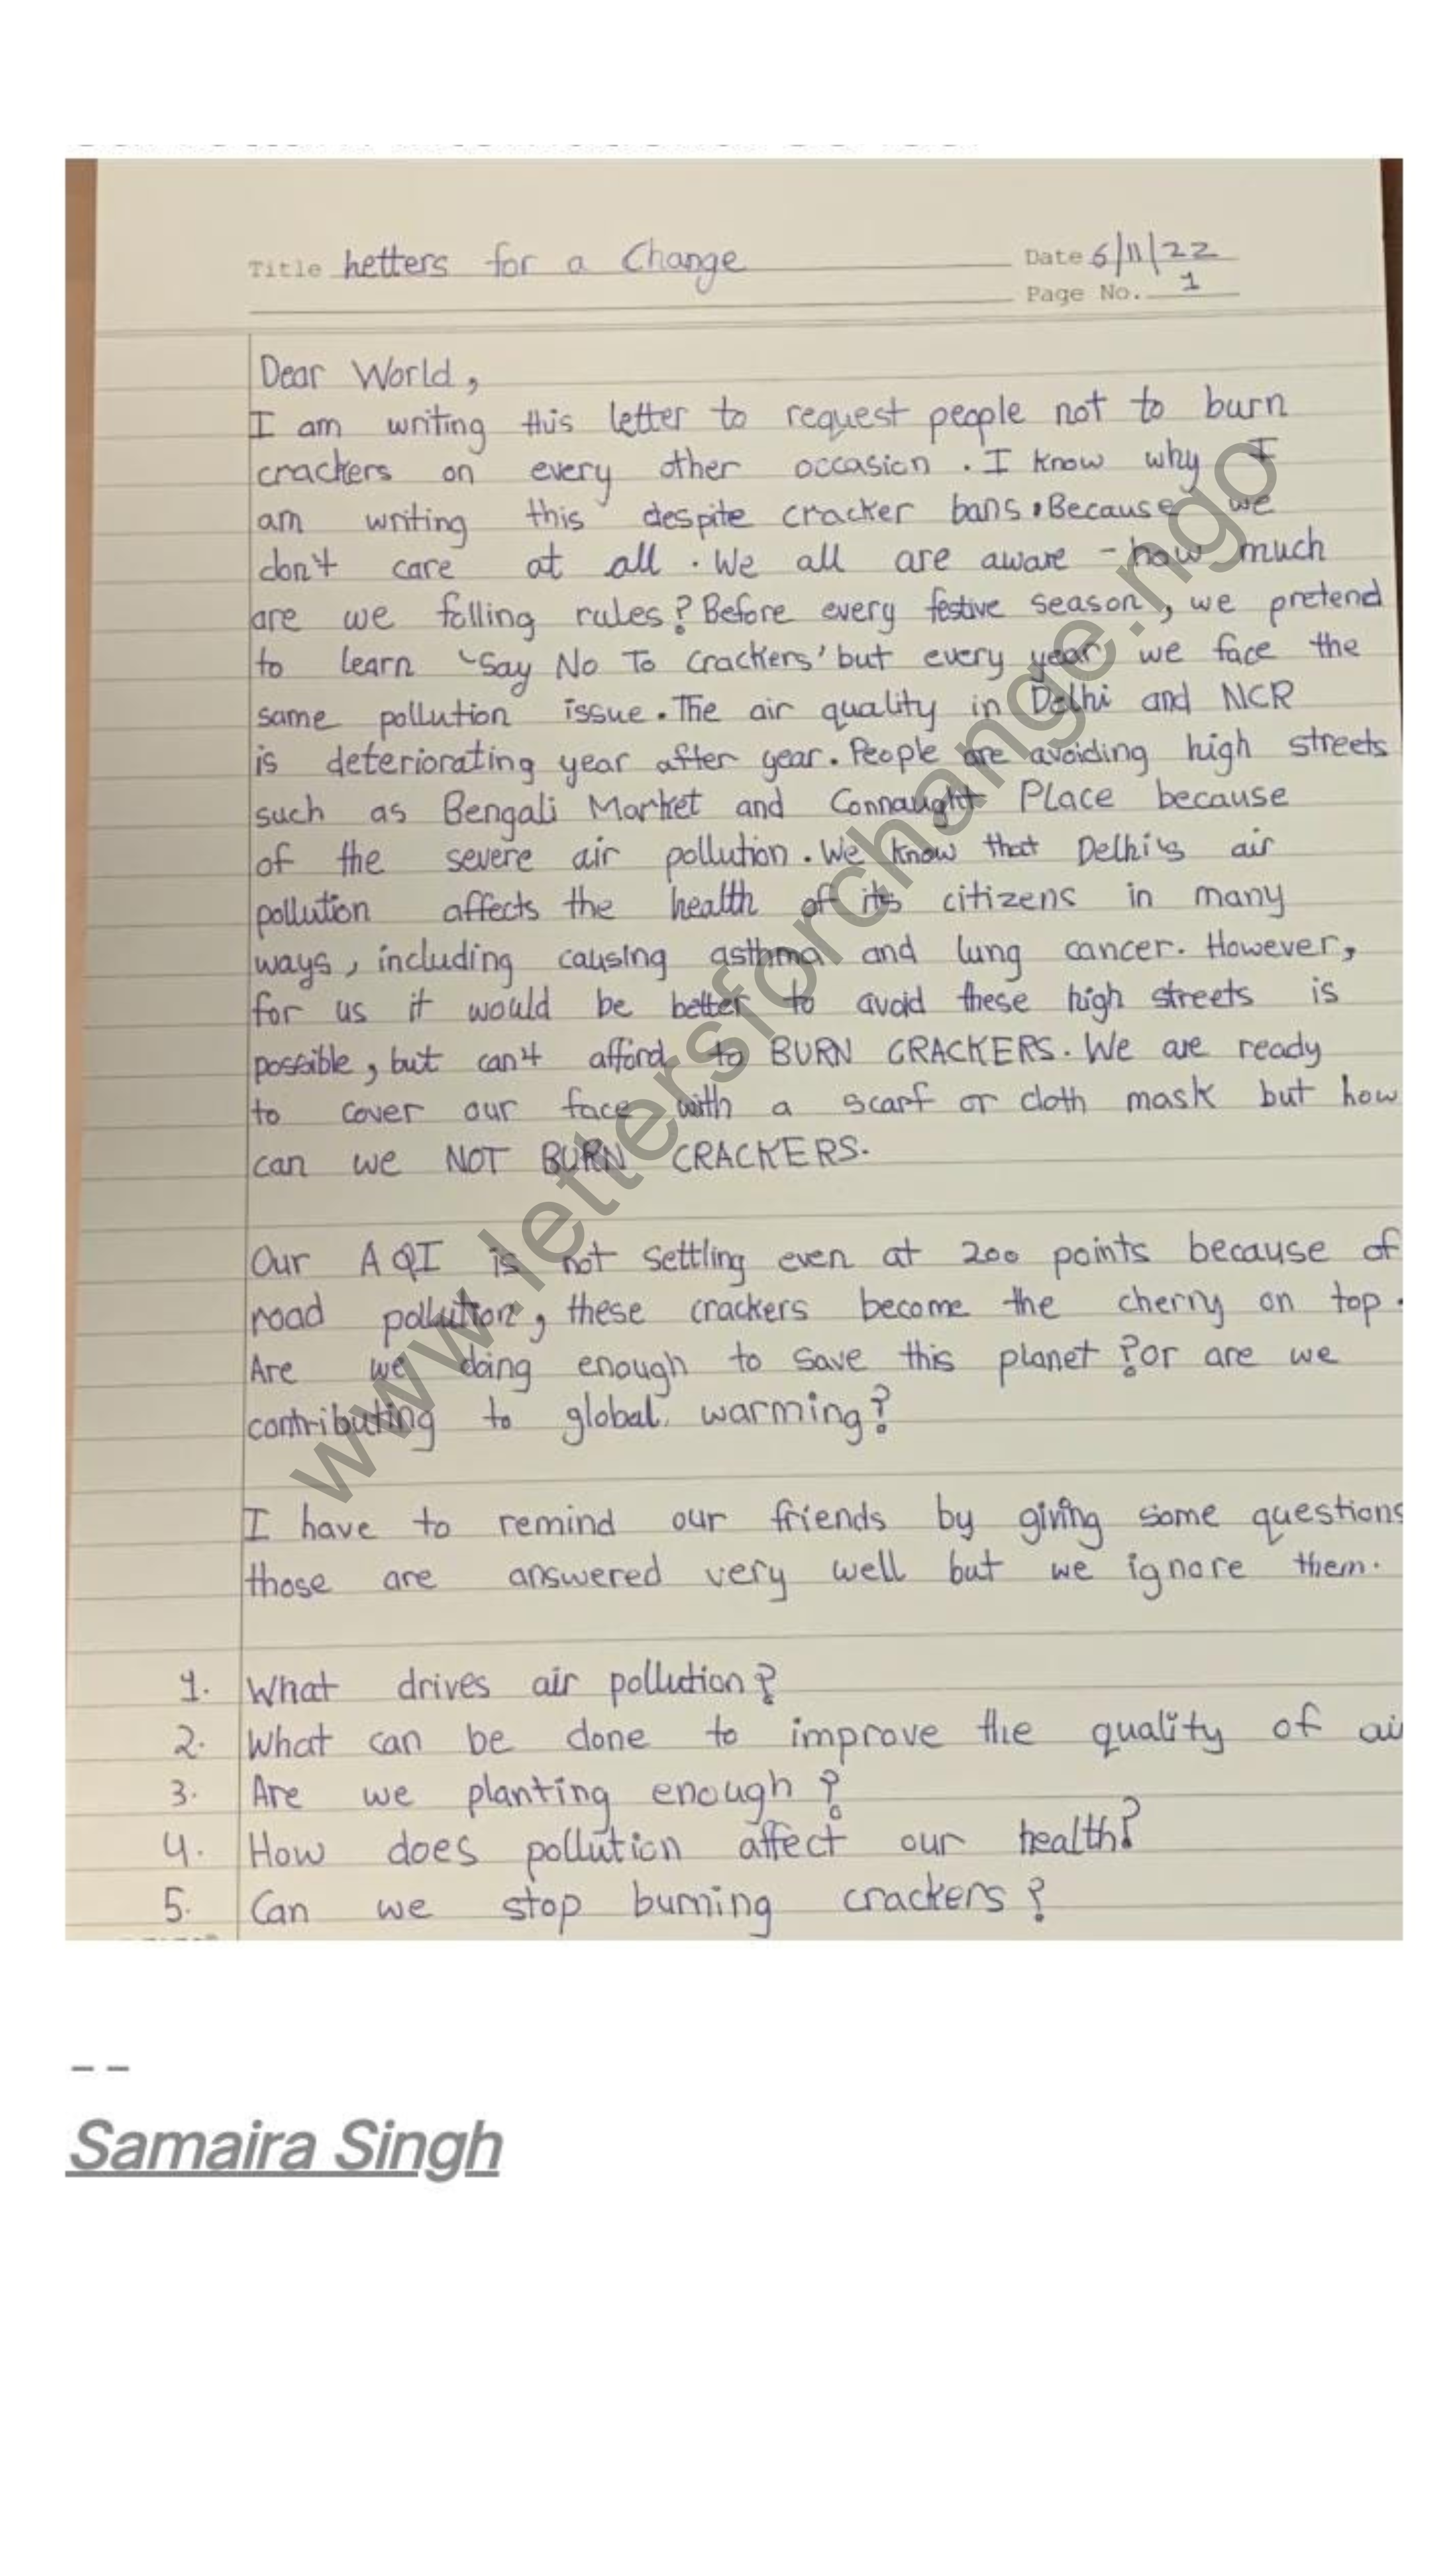 Title Letters for a Change
Date 6/11/22
Page No. 1
Dear World,
I am writing this letter to request people not to burn
crackers on every other occasion. I know why I
am writing this despite cracker bans. Because we
don't care at all. We all are aware - how much
are we folling rules? Before every festive season, we pretend
to learn 'Say No To Crackers' but every year we face the
same pollution issue. The air quality in Delhi and NCR
is deteriorating year after year. People are avoiding high streets
such as Bengali Market and Connaught Place because
of the severe air pollution. We know that Delhi's air
pollution affects the health of its citizens in many
ways, including causing asthma and lung cancer. However,
for us it would be better to avoid these high streets is
possible, but can't afford to BURN CRACKERS. We are ready
to cover our face with a scarf or cloth mask but how
can we NOT BURN CRACKERS.
Our AQI is not settling even at 200 points because of
road pollution, these crackers become the cherry on top.
Are we doing enough to save this planet? or are we
contributing to global warming?
I have to remind our friends by giving some questions
those are answered very well but we ignore them.
1. What drives air pollution?
2. What can be done to improve the quality of ai
3. Are we planting enough?
4. How does pollution affect our health?
5. Can we stop burning crackers?
www.lettersforchange.ngo
--
Samaira Singh